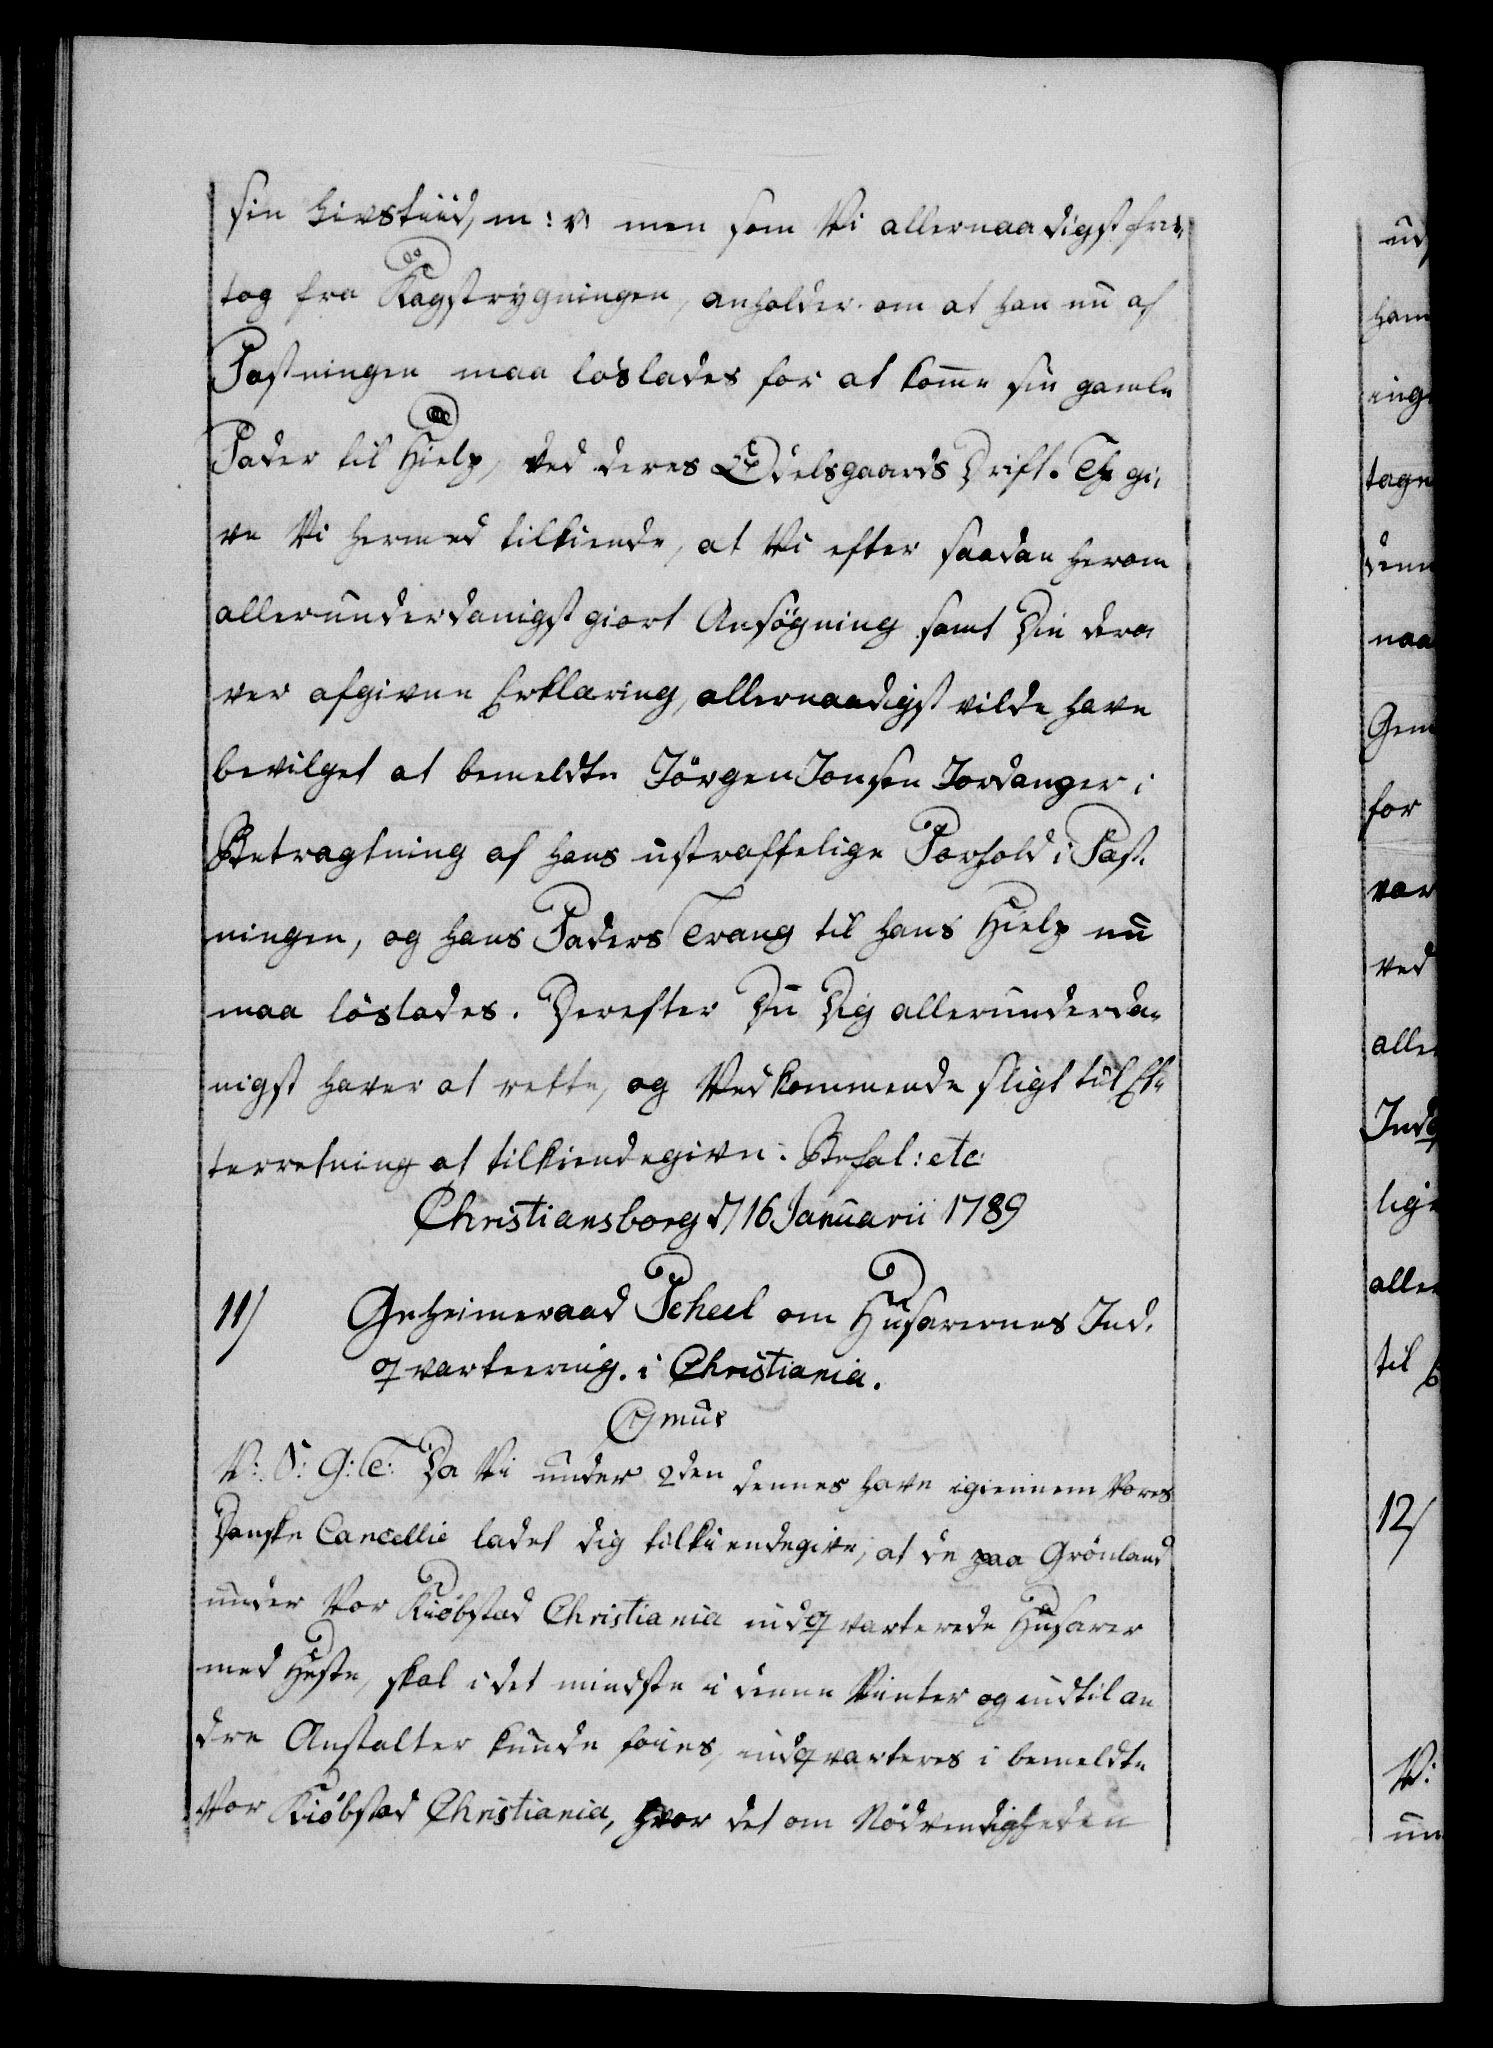 sin Livstiid, m: v: men som Vi allernaadigst fri-
tog fra Kagstrygningen, anholder om at han nu af
Fæstningen maa løslades for at komme sin gamle
Fader til Hielp, ved deres Odelsgaards Drift. Thi gi-
ve Vi hermed tilkiende, at Vi efter saadan herom
allerunderdanigst giort Ansøgning samt Din dero-
ver afgivne Erklæring, allernaadigst vilde have
bevilget at bemeldte Jörgen Jonsen Jordanger i
Betragtning af hans ustraffelige Forhold i Fæst-
ningen, og hans Faders Trang til hans Hielp nu
maa löslades. Derefter Du Dig allerunderda-
nigst haver at rette, og Vedkommende sligt til Ef-
terretning at tilkiendegive. Befal: etc
Christiansborg d/ 16 Januarii 1789
11/ Geheimeraad Scheel om Husarernes Ind-
qvartering i Christiania.
V: S: G: T: Da Vi under 2den dennes have igiennem Vores
Danske Cancellie ladet dig tilkiendegive, at de paa Grönland
under Vor Kiöbstad Christiania indqvarterede Husarer
med Heste, skal i det mindste i denne Vinter og indtil an
dre Anstalter kunde föies, indqvarteres i bemeldte
Vor Kiöbstad Christiania, hvor det om Nödvendigheden
ud
ham
tage
naa
for
var
ved
alle
Indq
lige
alle
til
12/
V: